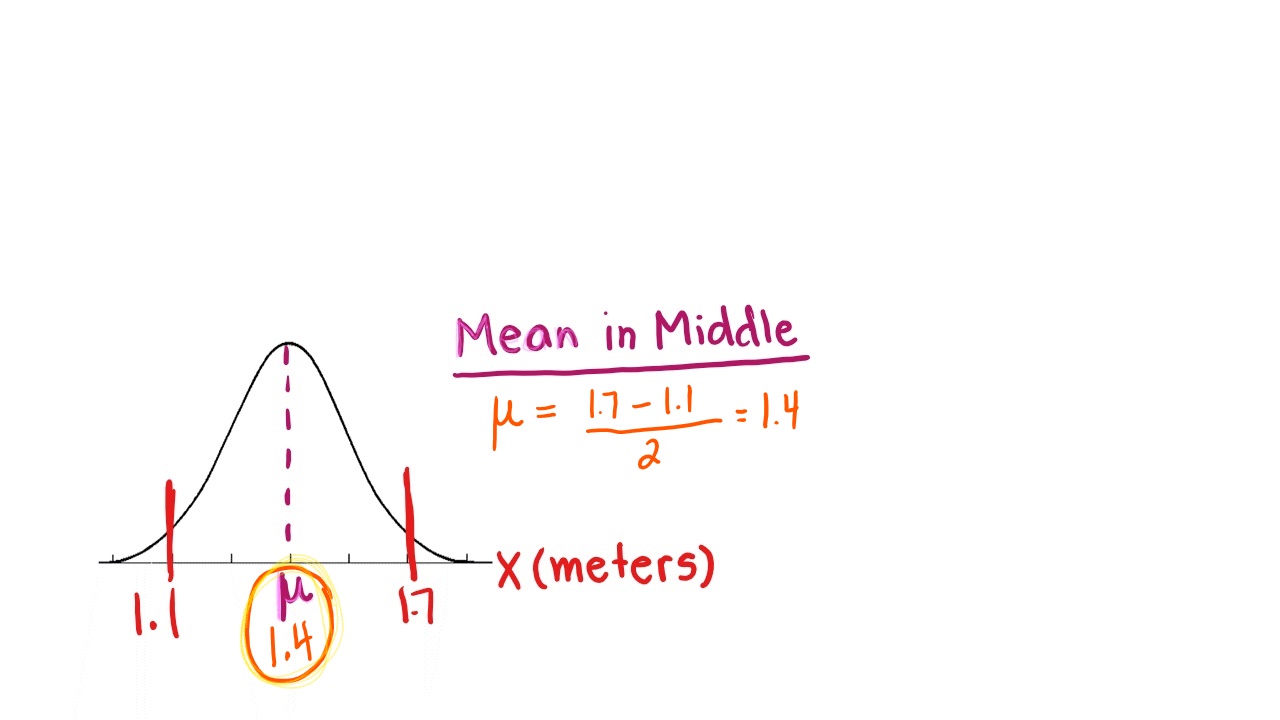 Mean in Middle
μ = 1.7 - 1.1 / 2 = 1.4
X (meters)
1.1
μ
1.7
1.4